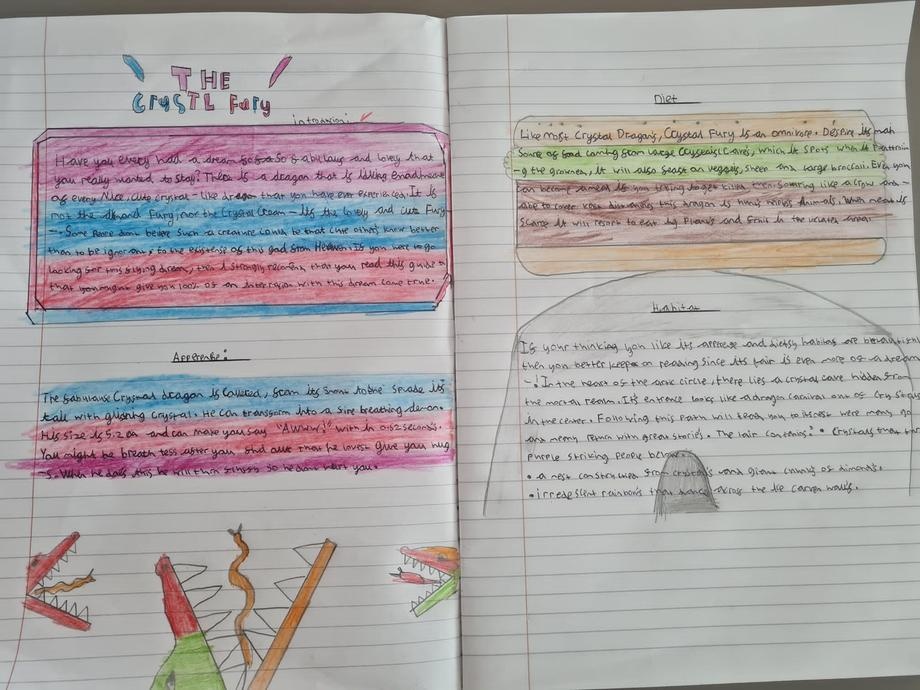 THE
CrysTL Fury
introssion:
Have you every had a dream so fabulous and lovly that
you really wanted to stay? There is a dragon that is
of every Nice, cute crystal-like dream that you have ever exerienced. It is
not the Fury, nor the Crystal - Its the lovly and cute Fury
- Some Pepole don't beleve such a creature could be that cute others know better
than to be ignorant to the existense of this god from Heaven. If you here to go
looking for this slying dream, then I strongly recomend that you read this guide
that you might give you 100% of an with this dream come true.
Apperense:
The fabulause Crysmal dragon is from its snow to the spade its
tall with crystals. He can transform into a fire breathing demon.
His size is 5.2 cm and can make you say "AWWW!" with in 0.62 seconds.
You might be breath tess after you find out that he loves give you hug
-s. When he does this he will so he don't hert you.
Diet
Like most Crystal Dragons, Crystal Fury is an omnivore. Despite its main
Source of food coming from large Caves, which it spots when it
-g the grownes, it will also feast on vegegis, sheep and large broccoli. Even you
can become a meal if you trying to get killed then. Soaring like a crow and
able to cover vast distanses this dragon is animals. When meat is
scarse it will resort to eat plants and fruit in the areas.
Habitat
If your thinking you like its apprense and dietsy habitas are
then you better keep on reading since its lair is even more of a dream
-: In the heart of the artic circle, there lies a crystal cave hidden from
the mortal realm. It's entrence looks like a dragon out of
in the center. Following this path will lead you to its nest were many go
and meny return with great storeis. The lair contanins: • Crystals that
purple striking people below.
• a nest constructed from crystals and giant chunks of dimonds.
• irredeslent rainbows that dance across the ice carven walls.